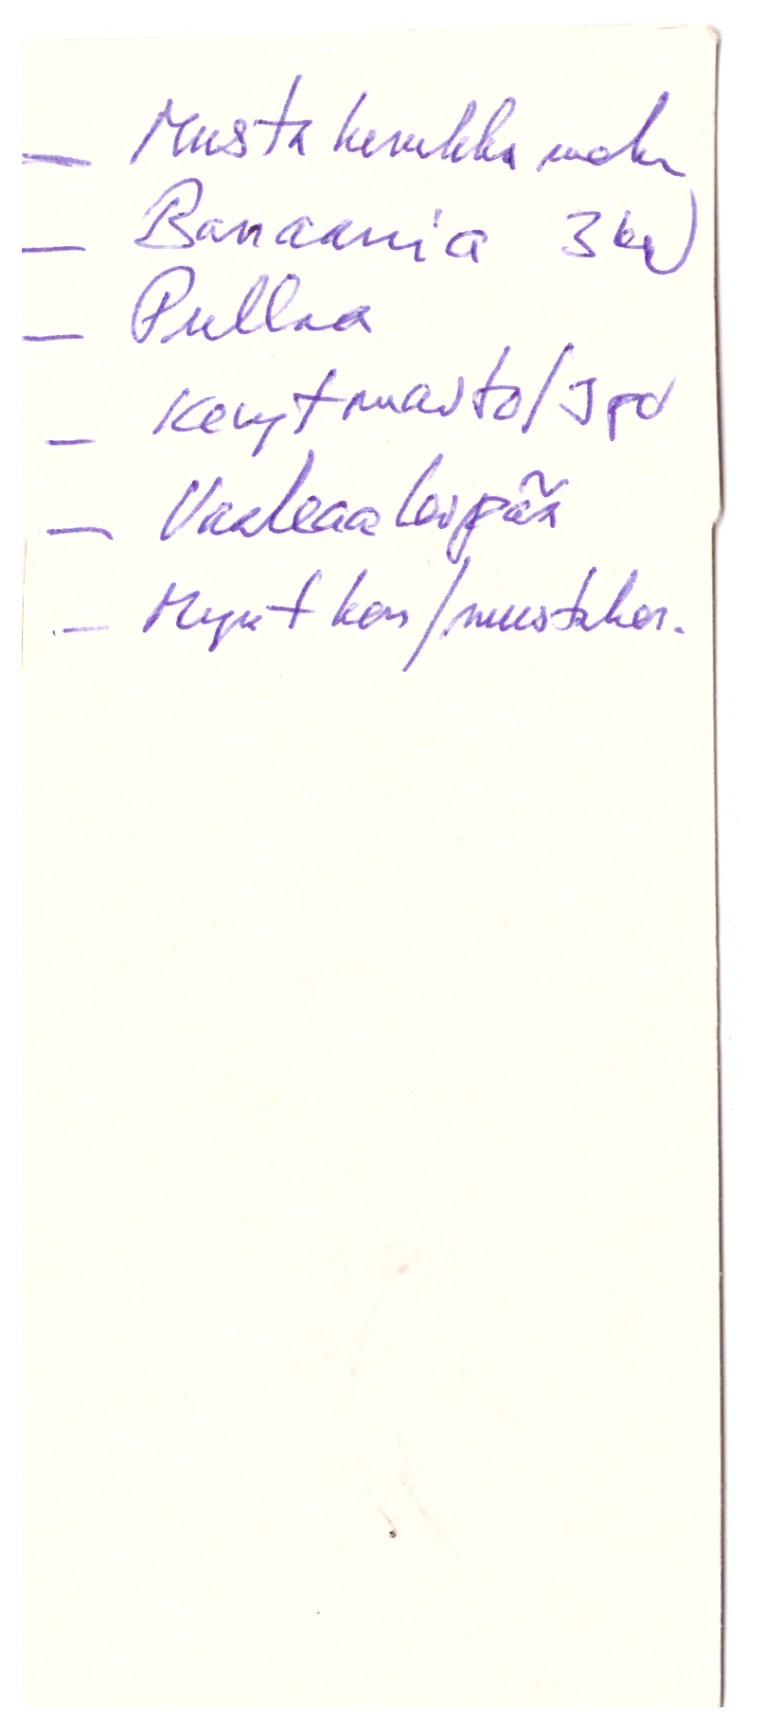 — Mustaherukka mehu
— Banaania 3 kg
— Pullaa
— Kevytmaito/3 pv
— Vaaleaa leipää
— Mynthon/mustaher.